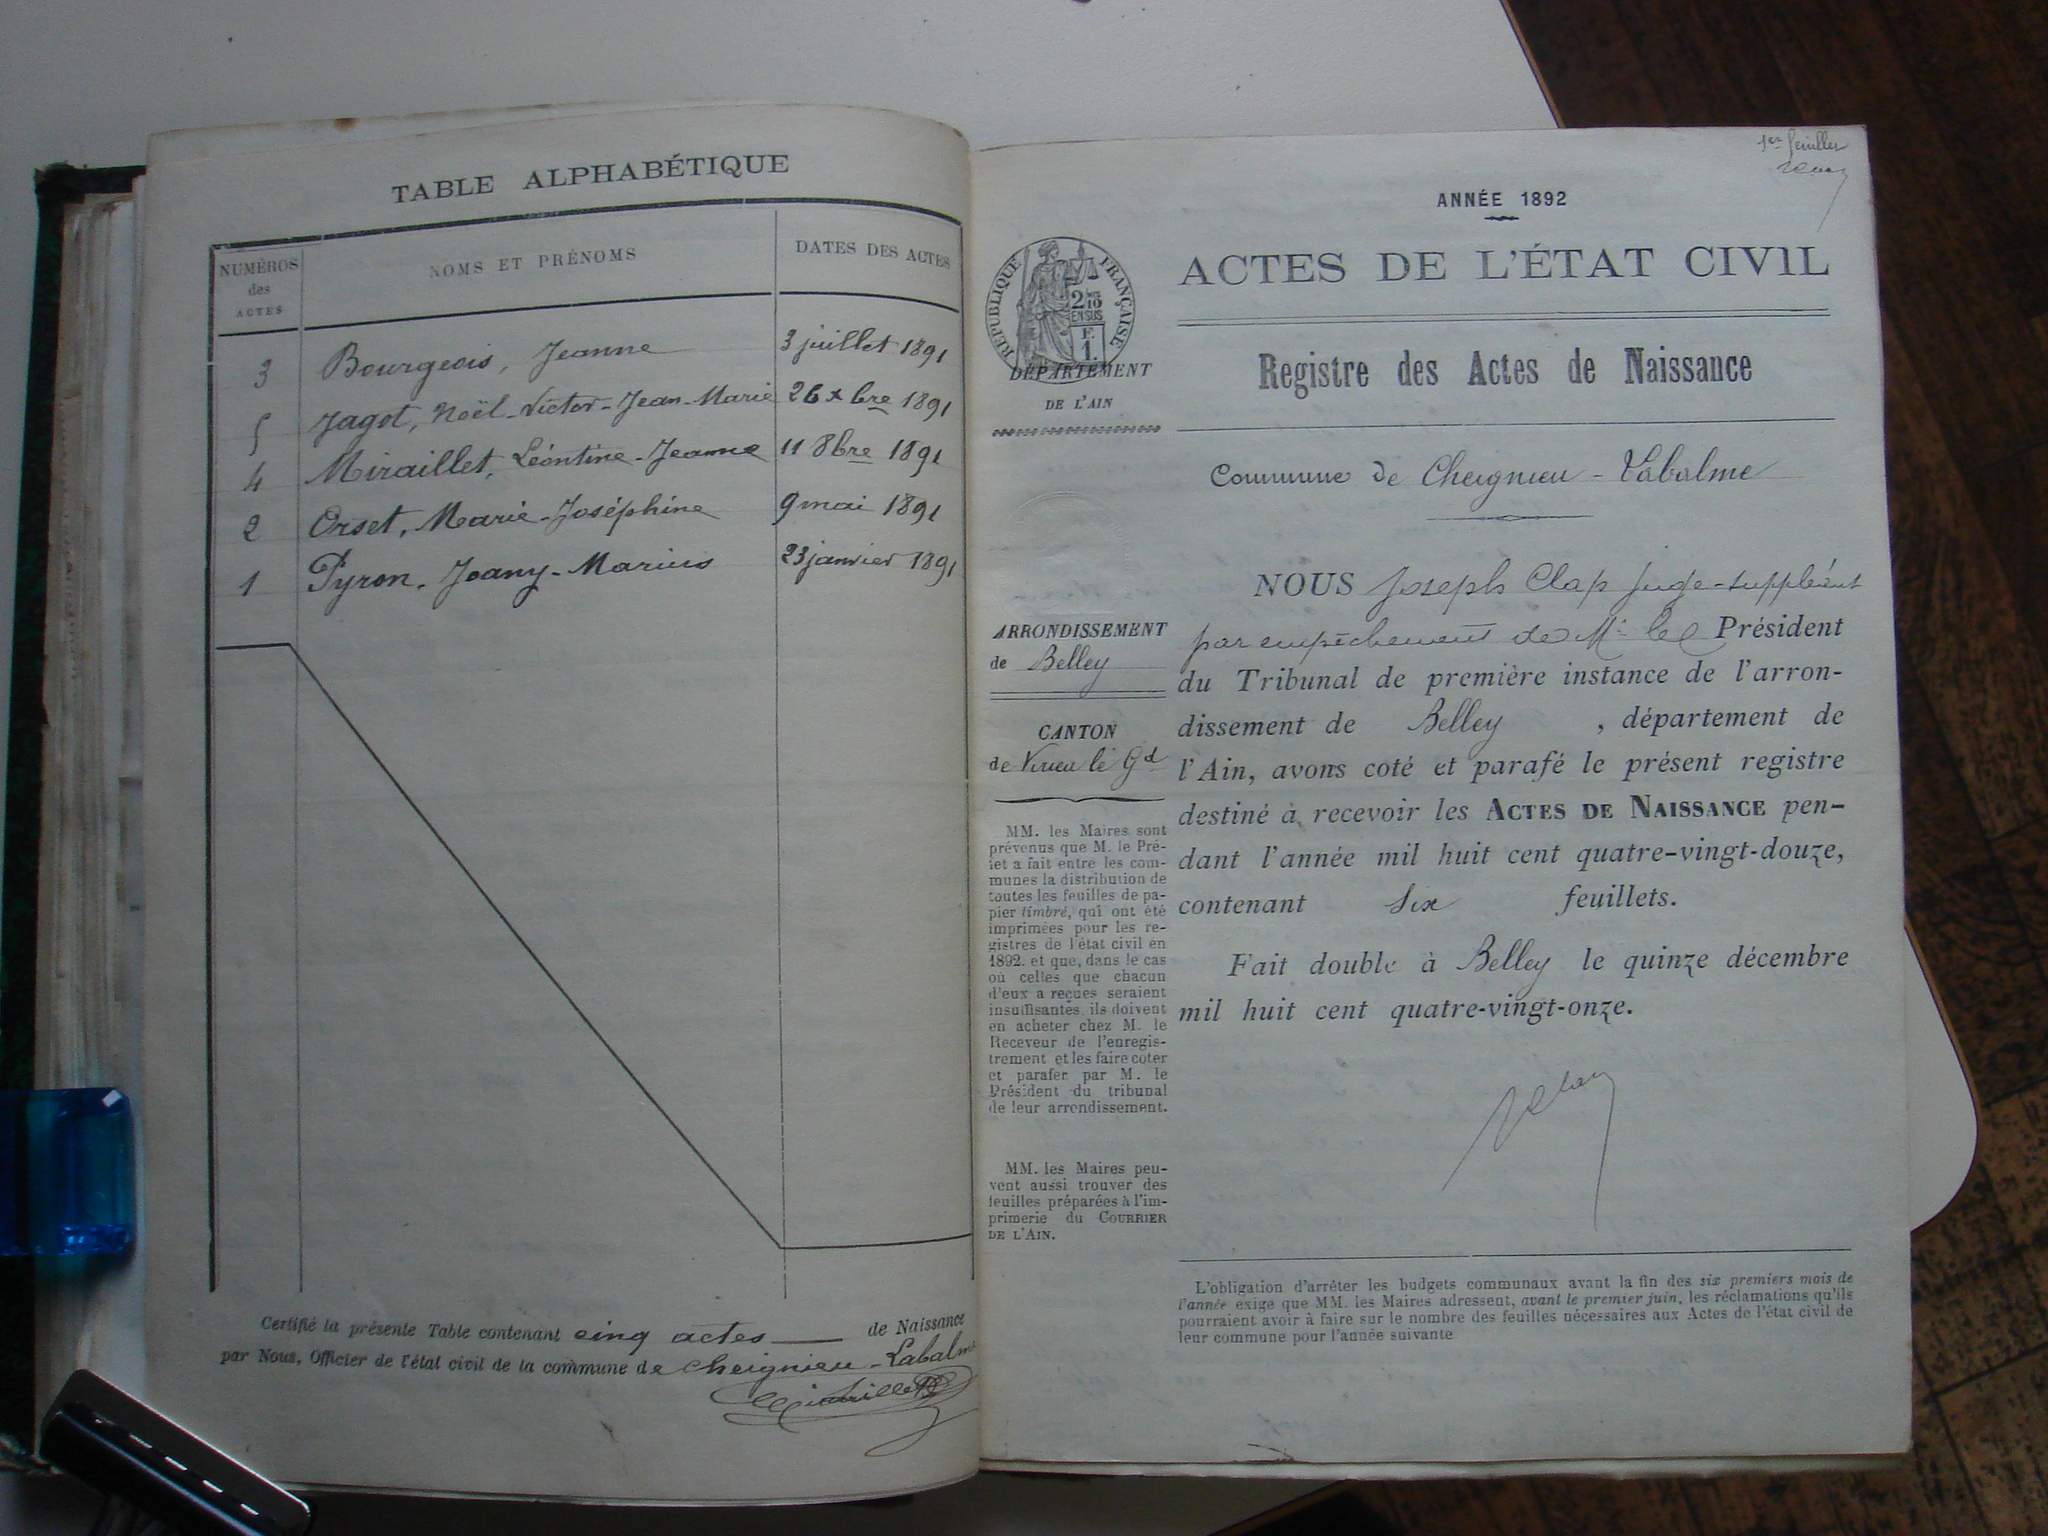 TABLE ALPHABÉTIQUE
NUMÉROS des ACTES
NOMS ET PRÉNOMS
DATES DES ACTES
3 Bourgeois, Jeanne 3 juillet 1891
5 Jagot, Noël-Victor-Jean-Marie 26 xbre 1891
4 Miraillet, Léontine-Jeanne 11 8bre 1891
2 Orset, Marie-Joséphine 9 mai 1891
1 Pyron, Joany-Marius 23 janvier 1891
Certifié la présente Table contenant cinq actes de Naissance
par Nous, Officier de l'état civil de la commune de Cheignieu-Labalme
1er feuillet
ANNÉE 1892
RÉPUBLIQUE FRANÇAISE
2/10
EN SUS
F.
1.
DÉPARTEMENT
DE L'AIN
ARRONDISSEMENT
de Belley
CANTON
de Virieu le Gd
MM. les Maires sont
prévenus que M. le Pré-
fet a fait entre les com-
munes la distribution de
toutes les feuilles de pa-
pier timbré, qui ont été
imprimées pour les re-
gistres de l'état civil en
1892. et que, dans le cas
où celles que chacun
d'eux a reçues seraient
insuffisantes, ils doivent
en acheter chez M. le
Receveur de l'enregis-
trement et les faire coter
et parafer par M. le
Président du tribunal
de leur arrondissement.
MM. les Maires peu-
vent aussi trouver des
feuilles préparées à l'im-
primerie du COURRIER
DE L'AIN.
ACTES DE L'ÉTAT CIVIL
Registre des Actes de Naissance
Commune de Cheignieu-Labalme
NOUS Joseph Clap juge-suppléant
par empêchement de Mr le Président
du Tribunal de première instance de l'arron-
dissement de Belley, département de
l'Ain, avons coté et parafé le présent registre
destiné à recevoir les ACTES DE NAISSANCE pen-
dant l'année mil huit cent quatre-vingt-douze,
contenant six feuillets.
Fait double à Belley le quinze décembre
mil huit cent quatre-vingt-onze.
L'obligation d'arrêter les budgets communaux avant la fin des six premiers mois de
l'année exige que MM. les Maires adressent, avant le premier juin, les réclamations qu'ils
pourraient avoir à faire sur le nombre des feuilles nécessaires aux Actes de l'état civil de
leur commune pour l'année suivante